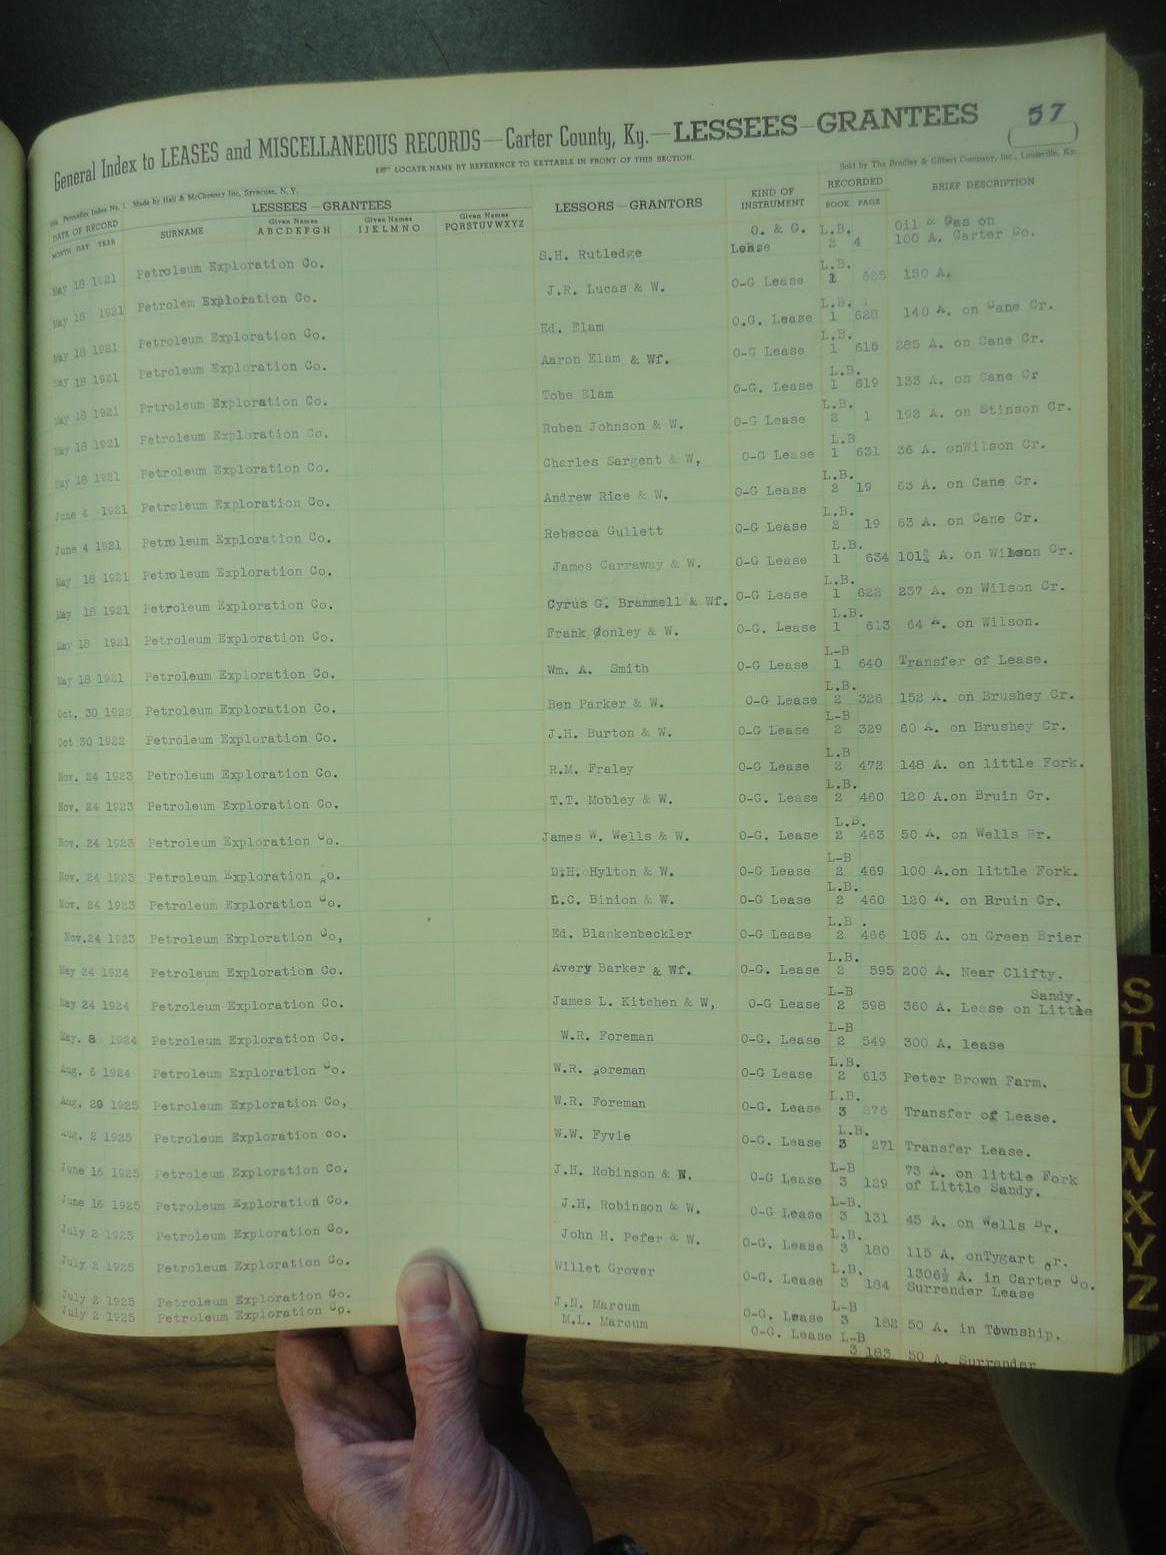 57
General Index to LEASES and MISCELLANEOUS RECORDS—Carter County, Ky.—LESSEES—GRANTEES
LOCATE NAME BY REFERENCE TO KEYTABLE IN FRONT OF THIS SECTION.
Sold by The Bradley & Gilbert Company, Inc., Louisville, Ky.
Index No. 1. Made by Hall & McChesney Inc. Syracuse, N. Y.
DATE OF RECORD MONTH DAY YEAR LESSEES—GRANTEES SURNAME Given Names ABCDEFGH Given Names IJKLMNO Given Names PQRSTUVWXYZ LESSORS—GRANTORS KIND OF INSTRUMENT RECORDED BOOK PAGE BRIEF DESCRIPTION
May 18 1921 Petroleum Exploration Co. S.H. Rutledge O. & G. Lease L.B. 2 4 Oil & Gas on 100 A. Carter Co.
May 18 1921 Petrolem Exploration Co. J.R. Lucas & W. O-G Lease L.B. 1 625 150 A.
May 18 1921 Petroleum Exploration Co. Ed. Elam O.G. Lease L.B. 1 628 140 A. on Cane Cr.
May 18 1921 Petroleum Exploration Co. Aaron Elam & Wf. O-G Lease L.B. 1 615 285 A. on Cane Cr.
May 18 1921 Prtroleum Exploration Co. Tobe Elam O-G. Lease L.B. 1 619 133 A. on Cane Cr
May 18 1921 Petroleum Exploration Co. Ruben Johnson & W. O-G Lease L.B. 2 1 192 A. on Stinson Cr.
May 18 1921 Petroleum Exploration Co. Charles Sargent & W, O-G Lease L.B 1 631 36 A. onWilson Cr.
June 4 1921 Petroleum Exploration Co. Andrew Rice & W. O-G Lease L.B. 2 19 63 A. on Cane Cr.
June 4 1921 Petroleum Exploration Co. Rebecca Gullett O-G Lease L.B. 2 19 63 A. on Cane Cr.
May 18 1921 Petroleum Exploration Co. James Carraway & W. O-G Lease L.B. 1 634 A. on Wilson Cr.
May 18 1921 Petroleum Exploration Co. Cyrus G. Brammell & Wf. O-G Lease L.B. 1 622 237 A. on Wilson Cr.
May 18 1921 Petroleum Exploration Co. Frank Conley & W. O-G. Lease L.B. 1 613 64 A. on Wilson.
May 18 1921 Petroleum Exploration Co. Wm. A. Smith O-G Lease L-B 1 640 Transfer of Lease.
Oct. 30 1922 Petroleum Exploration Co. Ben Parker & W. O-G Lease L.B. 2 326 152 A. on Brushey Cr.
Oct 30 1922 Petroleum Exploration Co. J.H. Burton & W. O-G Lease L-B 2 329 60 A. on Brushey Cr.
Nov. 24 1923 Petroleum Exploration Co. R.M. Fraley O-G Lease L.B 2 472 148 A. on little Fork.
Nov. 24 1923 Petroleum Exploration Co. T.T. Mobley & W. O-G. Lease L.B. 2 460 120 A.on Bruin Cr.
Nov. 24 1923 Petroleum Exploration Co. James W. Wells & W. O-G. Lease L.B. 2 463 50 A. on Wells Br.
Nov. 24 1923 Petroleum Exploration Co. D.H. Hylton & W. O-G Lease L-B 2 469 100 A.on little Fork.
Nov. 24 1923 Petroleum Exploration Co. E.C. Binion & W. O-G Lease L.B. 2 460 120 A. on Bruin Cr.
Nov.24 1923 Petroleum Exploration Co, Ed. Blankenbeckler O-G Lease L.B . 2 466 105 A. on Green Brier
May 24 1924 Petroleum Exploration Co. Avery Barker & Wf. O-G. Lease L.B. 2 595 200 A. Near Clifty.
May 24 1924 Petroleum Exploration Co. James L. Kitchen & W, O-G Lease L-B 2 598 360 A. Lease on Little Sandy.
May. 8 1924 Petroleum Exploration Co. W.R. Foreman O-G. Lease L-B 2 549 300 A. lease
Aug. 6 1924 Petroleum Exploration Co. W.R. Foreman O-G Lease L.B. 2 613 Peter Brown Farm.
Aug. 20 1925 Petroleum Exploration Co, W.R. Foreman O-G. Lease L.B. 3 276 Transfer of Lease.
Aug. 2 1925 Petroleum Exploration co. W.W. Fyvie O-G. Lease L.B. 3 271 Transfer Lease.
June 16 1925 Petroleum Exploration Co. J.H. Robinson & W. O-G Lease L-B 3 129 73 A. on little Fork of Little Sandy.
June 16 1925 Petroleum Exploration Co. J.H. Robinson & W. O-G Lease L-B. 3 131 45 A. on Wells Br.
July 2 1925 Petroleum Exploration Co. John H. Pefer & W. O-G. Lease L.B. 3 180 115 A. onTygart Cr.
July 2 1925 Petroleum Exploration Co. Willet Grover O-G. Lease L.B. 3 184 1306½ A. in Carter Co. Surrender Lease
July 2 1925 Petroleum Exploration Co. J.N. Marcum O-G. Lease L-B 3 182 50 A. in Township.
July 2 1925 Petroleum Exploration Co. M.L. Marcum O-G. Lease L-B 3 183 50 A. Surrander
S
T
U
V
W
X
Y
Z